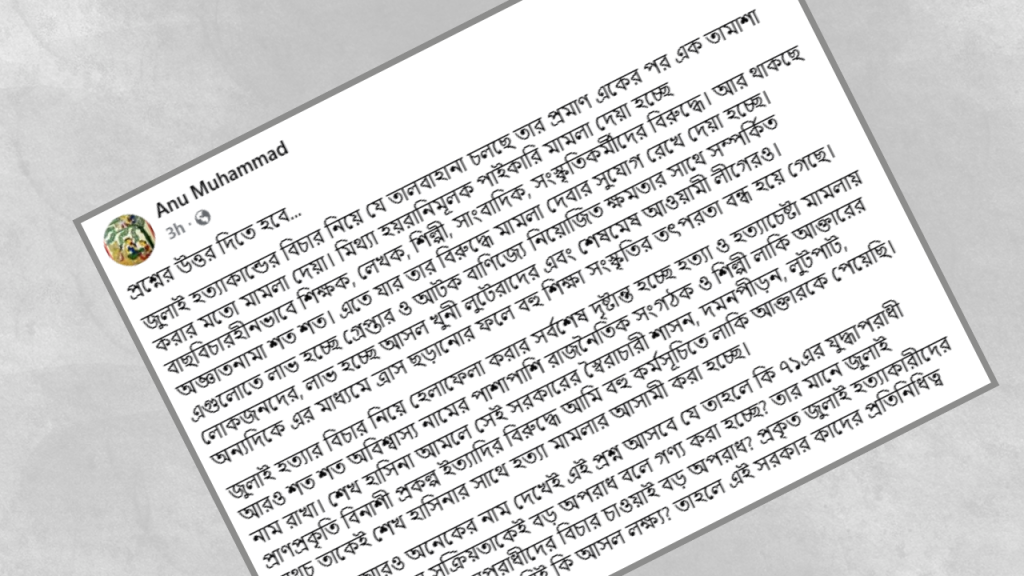 Anu Muhammad
3h ·
প্রশ্নের উত্তর দিতে হবে...
জুলাই হত্যাকান্ডের বিচার নিয়ে যে তালবাহানা চলছে তার প্রমাণ একের পর এক তামাশা
করার মতো মামলা দেয়া। মিথ্যা হয়রানিমূলক পাইকারি মামলা দেয়া হচ্ছে
বাছবিচারহীনভাবে শিক্ষক, লেখক, শিল্পী, সাংবাদিক, সংস্কৃতিকর্মীদের বিরুদ্ধে। আর থাকছে
অজ্ঞাতনামা শত শত। এতে যার তার বিরুদ্ধে মামলা দেবার সুযোগ রেখে দেয়া হচ্ছে।
এগুলোতে লাভ হচ্ছে গ্রেপ্তার ও আটক বাণিজ্যে নিয়োজিত ক্ষমতার সাথে সম্পর্কিত
লোকজনদের, লাভ হচ্ছে আসল খুনী লুটেরাদের এবং শেষমেষ আওয়ামী লীগেরও।
অন্যদিকে এর মাধ্যমে ত্রাস ছড়ানোর ফলে বহু শিক্ষা সংস্কৃতির তৎপরতা বন্ধ হয়ে গেছে।
জুলাই হত্যার বিচার নিয়ে হেলাফেলা করার সর্বশেষ দৃষ্টান্ত হচ্ছে হত্যা ও হত্যাচেষ্টা মামলায়
আরও শত শত অবিশ্বাস্য নামের পাশাপাশি রাজনৈতিক সংগঠক ও শিল্পী লাকি আক্তারের
নাম রাখা। শেখ হাসিনা আমলে সেই সরকারের স্বৈরাচারী শাসন, দমনপীড়ন, লুটপাট,
প্রাণপ্রকৃতি বিনাশী প্রকল্প ইত্যাদির বিরুদ্ধে আমি বহু কর্মসূচিতে লাকি আক্তারকে পেয়েছি।
তাকেই শেখ হাসিনার সাথে হত্যা মামলার আসামী করা হচ্ছে।
আরও অনেকের নাম দেখেই এই প্রশ্ন আসবে যে তাহলে কি ৭১এর যুদ্ধাপরাধী
সক্রিয়তাকেই বড় অপরাধ বলে গণ্য করা হচ্ছে? তার মানে জুলাই
বিচার চাওয়াই বড় অপরাধ? প্রকৃত জুলাই হত্যাকারীদের
কি আসল লক্ষ্য? তাহলে এই সরকার কাদের প্রতিনিধিত্ব